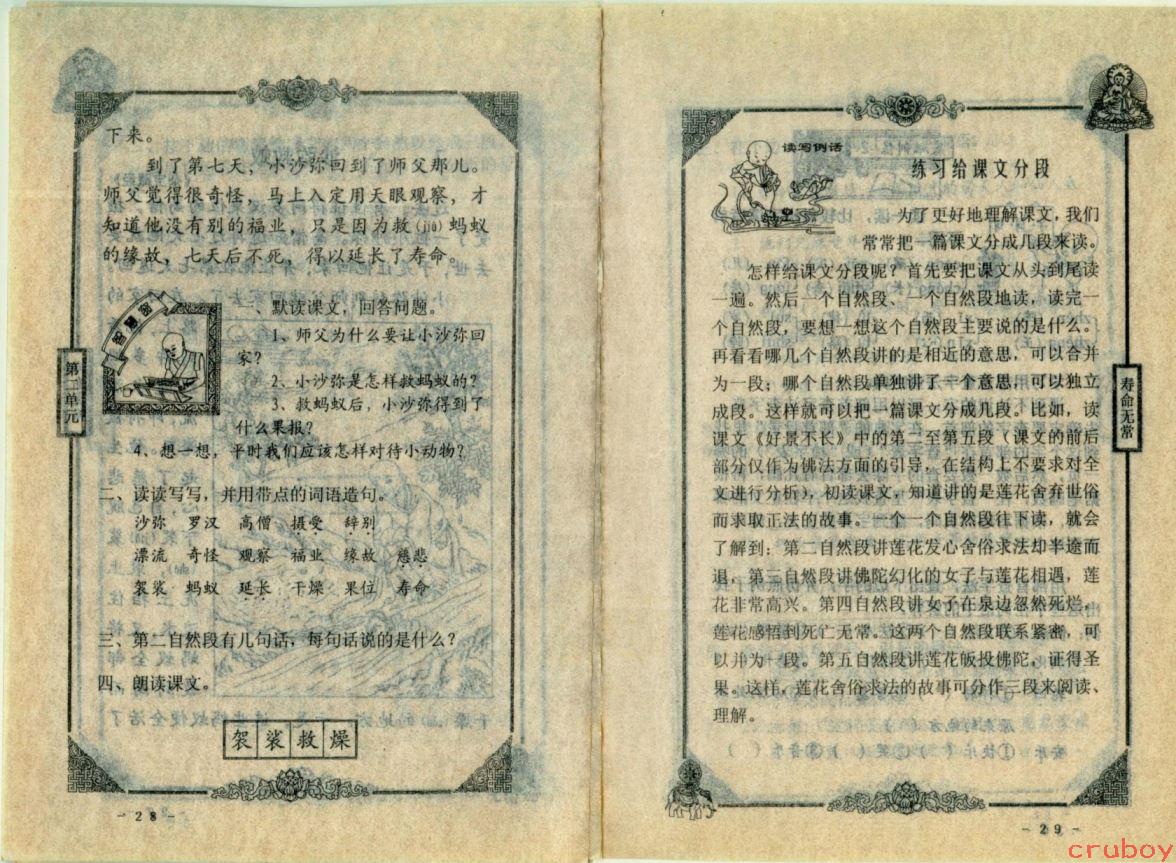 下来。
到了第七天，小沙弥回到了师父那儿。
师父觉得很奇怪，马上入定用天眼观察，才
知道他没有别的福业，只是因为救(jiù)蚂蚁
的缘故，七天后不死，得以延长了寿命。
智慧窗
一、默读课文，回答问题。
1、师父为什么要让小沙弥回
家？
2、小沙弥是怎样救蚂蚁的？
3、救蚂蚁后，小沙弥得到了
什么果报？
4、想一想，平时我们应该怎样对待小动物？
二、读读写写，并用带点的词语造句。
沙弥 罗汉 高僧 摄受 辞别
漂流 奇怪 观察 福业 缘故 慈悲
袈裟 蚂蚁 延长 干燥 果位 寿命
三、第二自然段有几句话，每句话说的是什么？
四、朗读课文。
袈裟救燥
第二单元
- 28 -
读写例话
练习给课文分段
为了更好地理解课文，我们
常常把一篇课文分成几段来读。
怎样给课文分段呢？首先要把课文从头到尾读
一遍。然后一个自然段、一个自然段地读，读完一
个自然段，要想一想这个自然段主要说的是什么。
再看看哪几个自然段讲的是相近的意思，可以合并
为一段；哪个自然段单独讲了一个意思，可以独立
成段。这样就可以把一篇课文分成几段。比如，读
课文《好景不长》中的第二至第五段（课文的前后
部分仅作为佛法方面的引导，在结构上不要求对全
文进行分析），初读课文，知道讲的是莲花舍弃世俗
而求取正法的故事。一个一个自然段往下读，就会
了解到：第二自然段讲莲花发心舍俗求法却半途而
退，第三自然段讲佛陀幻化的女子与莲花相遇，莲
花非常高兴。第四自然段讲女子在泉边忽然死烂，
莲花感悟到死亡无常。这两个自然段联系紧密，可
以并为一段。第五自然段讲莲花皈投佛陀，证得圣
果。这样，莲花舍俗求法的故事可分作三段来阅读、
理解。
寿命无常
- 29 -
cruboy